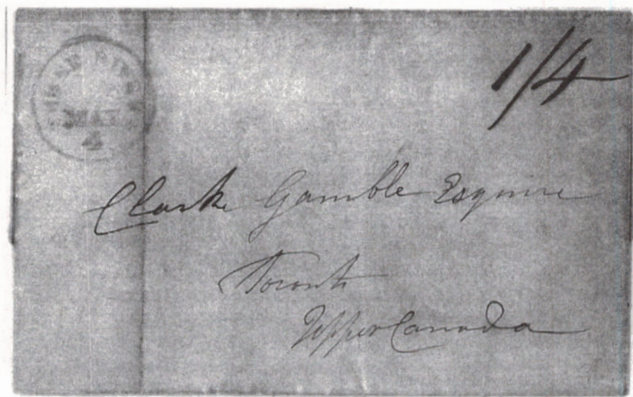 1/4
MAY
4
Clarke Gamble Esquire
Toronto
Upper Canada